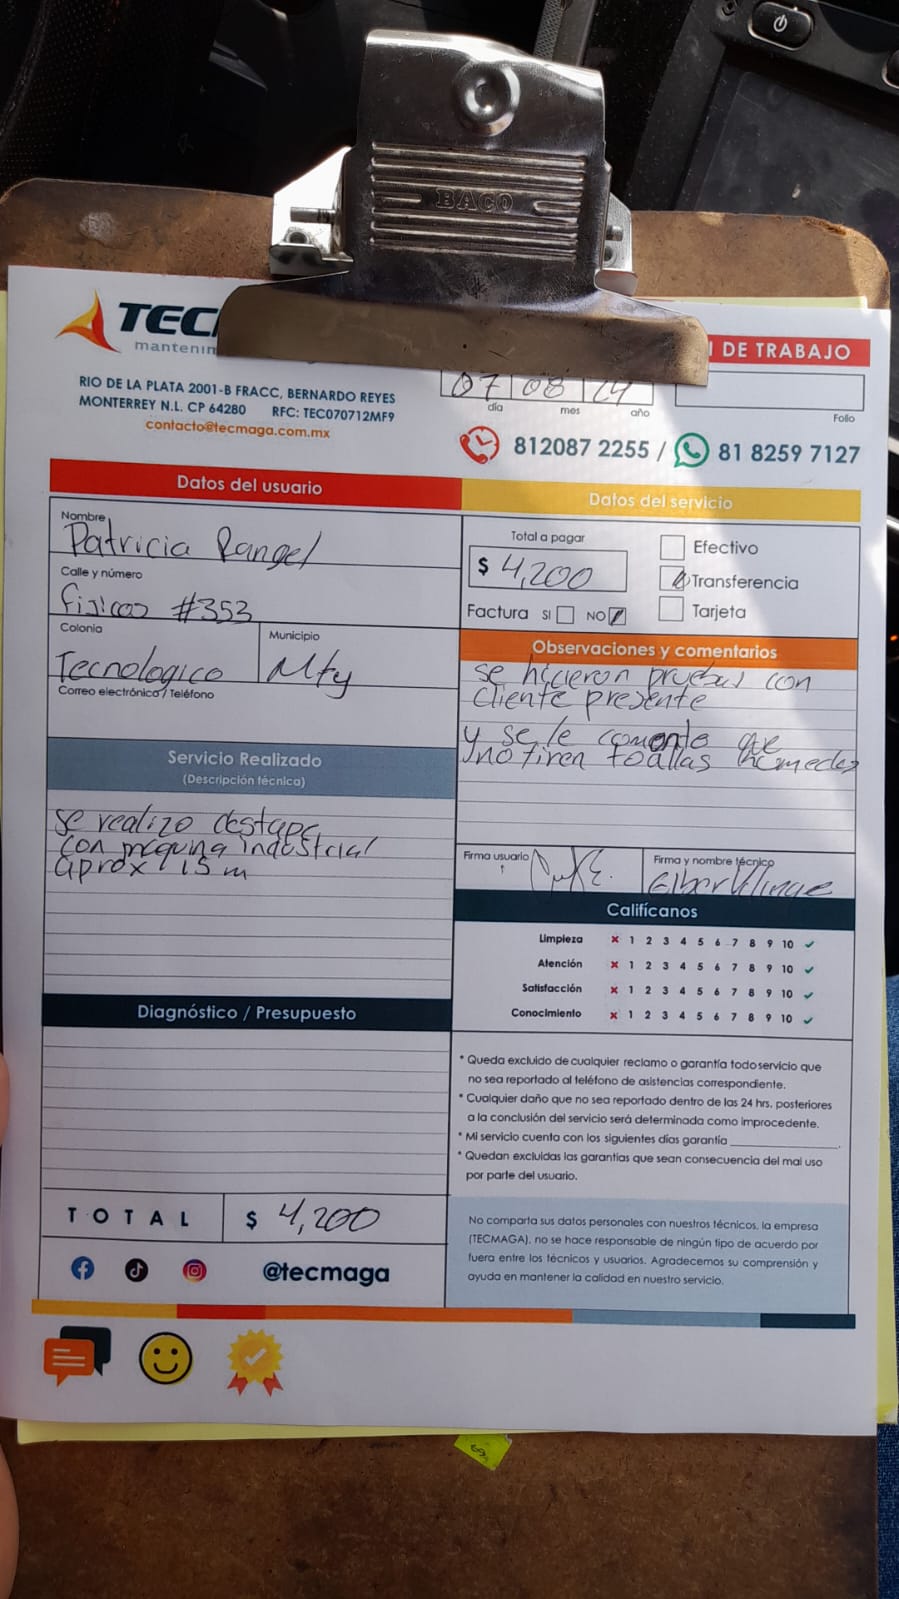 BACO
TEC
mantenim
DE TRABAJO
RIO DE LA PLATA 2001-B FRACC, BERNARDO REYES
MONTERREY N.L. CP 64280 RFC: TEC070712MF9
contacto@tecmaga.com.mx
07 08 24
día mes año
Folio
812087 2255 / 81 8259 7127
Datos del usuario
Nombre
Patricia Rangel
Calle y número
fisicos #353
Colonia
Tecnologico
Municipio
Mty
Correo electrónico / Teléfono
Datos del servicio
Total a pagar
$ 4,200
Efectivo
Transferencia
Tarjeta
Factura SI NO
Observaciones y comentarios
se hicieron pruebas con
cliente presente
y se le comento que
no tiren toallas humedas
Servicio Realizado
(Descripción técnica)
se realizo destape
con maquina industrial
aprox 15 m
Firma usuario
Firma y nombre técnico
Califícanos
Limpieza 1 2 3 4 5 6 7 8 9 10
Atención 1 2 3 4 5 6 7 8 9 10
Satisfacción 1 2 3 4 5 6 7 8 9 10
Conocimiento 1 2 3 4 5 6 7 8 9 10
Diagnóstico / Presupuesto
* Queda excluido de cualquier reclamo o garantía todo servicio que
no sea reportado al teléfono de asistencias correspondiente.
* Cualquier daño que no sea reportado dentro de las 24 hrs. posteriores
a la conclusión del servicio será determinada como improcedente.
* Mi servicio cuenta con los siguientes días garantía
* Quedan excluidas las garantías que sean consecuencia del mal uso
por parte del usuario.
TOTAL $ 4,200
@tecmaga
No comparta sus datos personales con nuestros técnicos, la empresa
(TECMAGA), no se hace responsable de ningún tipo de acuerdo por
fuera entre los técnicos y usuarios. Agradecemos su comprensión y
ayuda en mantener la calidad en nuestro servicio.